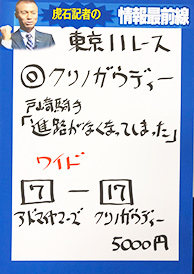 虎石記者の
情報最前線
東京11レース
◎クリノガウディー
戸崎騎手
「進路がなくなってしまった」
ワイド
7 — 17
アドマイヤマーズ クリノガウディー
5000円